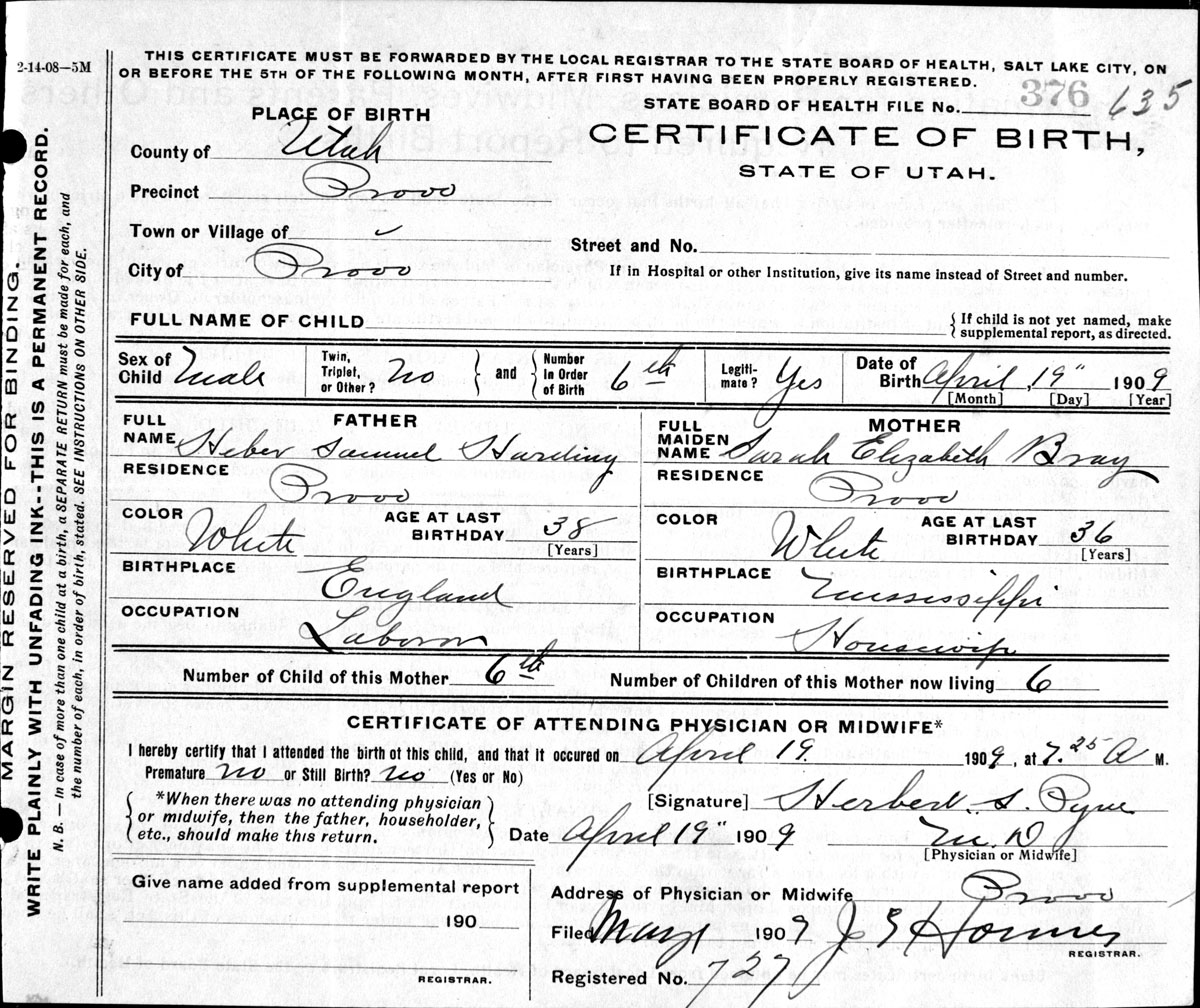 2-14-08—5M
THIS CERTIFICATE MUST BE FORWARDED BY THE LOCAL REGISTRAR TO THE STATE BOARD OF HEALTH, SALT LAKE CITY, ON
OR BEFORE THE 5TH OF THE FOLLOWING MONTH, AFTER FIRST HAVING BEEN PROPERLY REGISTERED.
STATE BOARD OF HEALTH FILE No. 376 635
PLACE OF BIRTH
CERTIFICATE OF BIRTH,
STATE OF UTAH.
County of Utah
Precinct Provo
Town or Village of
Street and No.
City of Provo
If in Hospital or other Institution, give its name instead of Street and number.
FULL NAME OF CHILD
{ If child is not yet named, make
supplemental report, as directed.
Sex of Child Male
Twin, Triplet, or Other? No
and
Number In Order of Birth 6th
Legiti-mate? Yes
Date of Birth April 19" 1909
[Month] [Day] [Year]
FATHER
FULL NAME Heber Samuel Harding
RESIDENCE Provo
COLOR White
AGE AT LAST BIRTHDAY 38
[Years]
BIRTHPLACE England
OCCUPATION Laborer
MOTHER
FULL MAIDEN NAME Sarah Elizabeth Bray
RESIDENCE Provo
COLOR White
AGE AT LAST BIRTHDAY 36
[Years]
BIRTHPLACE Mississippi
OCCUPATION Housewife
Number of Child of this Mother 6th Number of Children of this Mother now living 6
CERTIFICATE OF ATTENDING PHYSICIAN OR MIDWIFE*
I hereby certify that I attended the birth of this child, and that it occured on April 19. 1909, at 7.25 A M.
Premature No or Still Birth? No (Yes or No)
{ *When there was no attending physician
or midwife, then the father, householder,
etc., should make this return. }
[Signature] Herbert S. Pyne
Date April 19" 1909 M. D
[Physician or Midwife]
Give name added from supplemental report
190
REGISTRAR.
Address of Physician or Midwife Provo
Filed May 1909
REGISTRAR.
Registered No. 727
MARGIN RESERVED FOR BINDING.
WRITE PLAINLY WITH UNFADING INK--THIS IS A PERMANENT RECORD.
N. B. — In case of more than one child at a birth, a SEPARATE RETURN must be made for each, and
the number of each, in order of birth, stated. SEE INSTRUCTIONS ON OTHER SIDE.